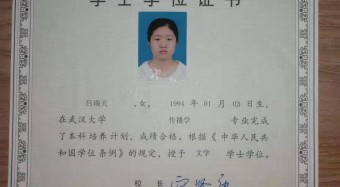 学士学位证书
吕瑞天 ,女, 1994 年 01 月 03 日生。
在武汉大学 传播学 专业完成
了本科培养计划,成绩合格,根据《中华人民共
和国学位条例》的规定,授予 文学 学士学位。
校 长